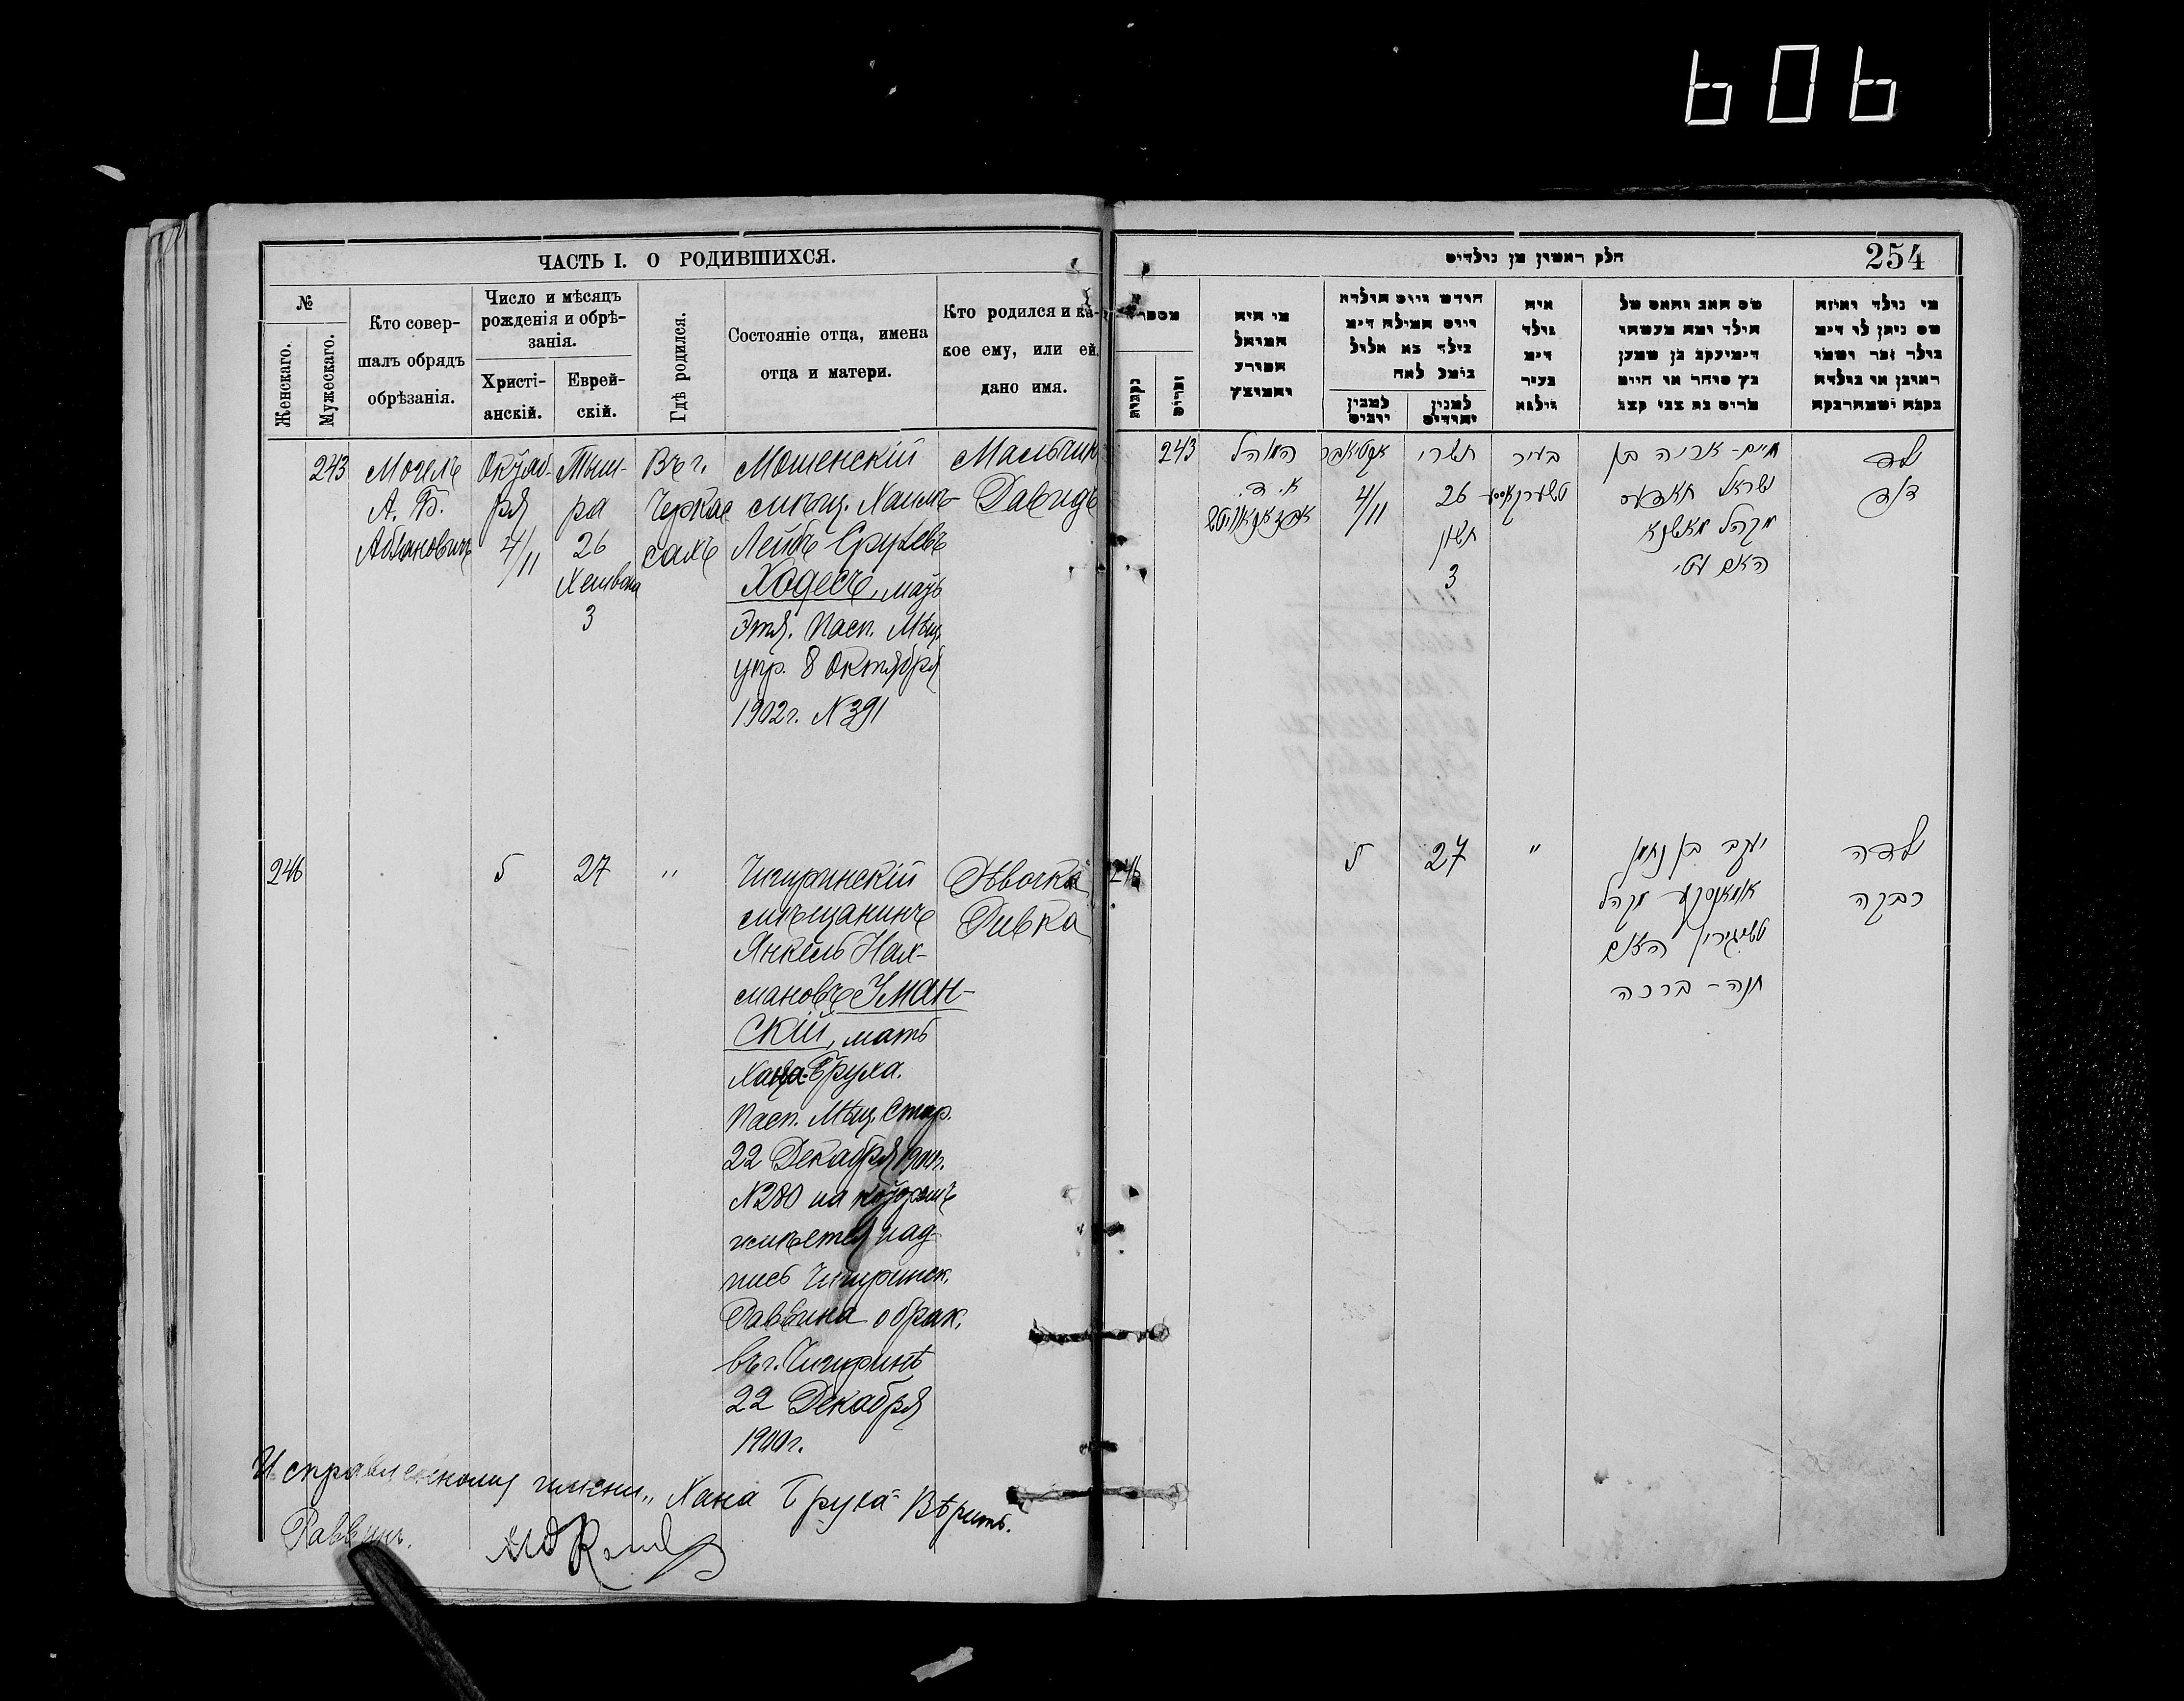 606
ЧАСТЬ I. О РОДИВШИХСЯ.
№
Женскаго.
Мужескаго.
Кто совер-
шалъ обрядъ
обрѣзанія.
Число и мѣсяцъ
рожденія и обрѣ-
занія.
Христі-
анскій.
Еврей-
скій.
Гдѣ родился.
Состояніе отца, имена
отца и матери.
Кто родился и ка-
кое ему, или ей,
дано имя.
243
Могелъ
А. Б.
Октяб-
ря
4/11
Тиш-
ра
26
Хешвона
3
Въ г.
Черкас
сахъ
Мошенскій
мѣщ. Хаимъ-
Лейбъ Срулевъ
Ходесъ, мать
Этя. Пасп. Мѣщ.
упр. 8 Октября
1902г. N 391
Мальчик
Давидъ
246
5
27
"
Чигиринскій
мѣщанинъ
Янкель Нах-
мановъ Уман-
скій, мать
Хана-Бруха.
Пасп. Мѣщ. Стар.
22 Декабря
N280 на которомъ
имѣется над-
пись Чигиринск.
Раввина о брак.
въ г. Чигиринѣ
22 Декабря
1900г.
Дѣвочка
Ривка
Исправленному имени „Хана Бруха" Вѣрить.
Раввинъ.
חלק ראשון מן נולדים
254
מספר
נקבות
זכרים
מי היה
המוהל
והמוצץ
חודש ויום הולדה
ויום המילה
למנין
יוונים
למנין
יהודים
איה
נולד
בעיר
ווילנא
שם האב והאם של
הילד ומה מעשהו
מי נולד ואיזה
שם ניתן לו
243
המוהל
א. ב.
אקטיאבר
4/11
תשרי
26
חשון
3
בעיר
טשערקאסע
חיים-אריה בן
ישראל חאדעס
מקהל מאשנא
האם עטי
ילד
דוד
246
5
27
"
יעקב בן נחמן
אומאנסקע מקהל
טשיגירין האם
חנה-ברכה
ילדה
רבקה